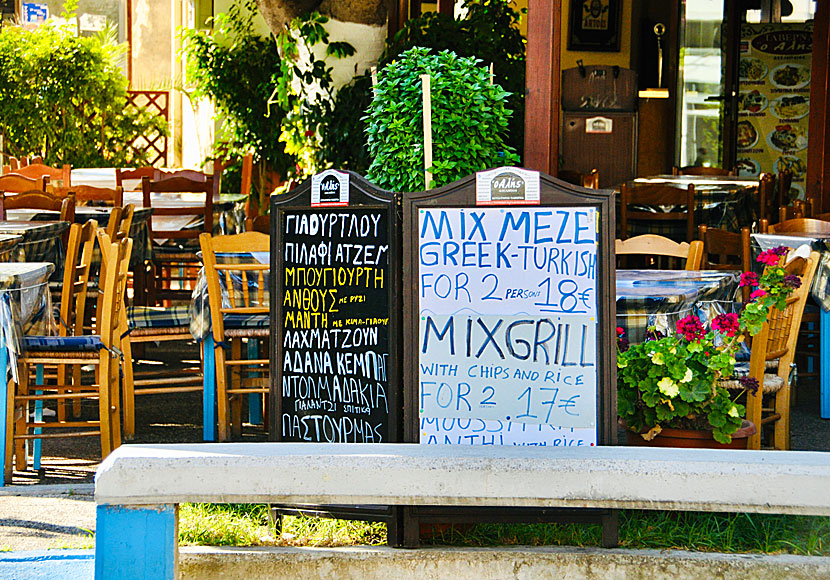 ΓΙΑΟΥΡΤΛΟΥ
ΠΙΛΑΦΙ ΑΤΖΕΜ
ΜΠΟΥΓΙΟΥΡΤΗ
ΑΝΘΟΥΣ ΜΕ ΡΥΖΙ
ΜΑΝΤΗ ΜΕ ΚΙΜΑ-ΓΙΑΟΥΡ
ΛΑΧΜΑΤΖΟΥΝ
ΑΔΑΝΑ ΚΕΜΠΑΠ
ΝΤΟΛΜΑΔΑΚΙΑ
ΓΙΑΛΑΝΤΖΙ ΣΠΙΤΙΚΑ
ΠΑΣΤΟΥΡΜΑΣ
ο Αλής
MIX MEZE
GREEK-TURKISH
FOR 2 PERSONS 18€
MIXGRILL
WITH CHIPS AND RICE
FOR 2 17€
ΜΟΥΣΣΑΚΑ
ΑΝΤΗΙ WITH RICE
ΤΑΒΕΡΝΑ
ο Αλής